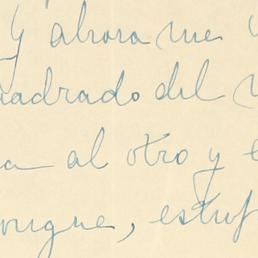 Y ahora me
uadrado del
a al otro y e
ongue, estuf